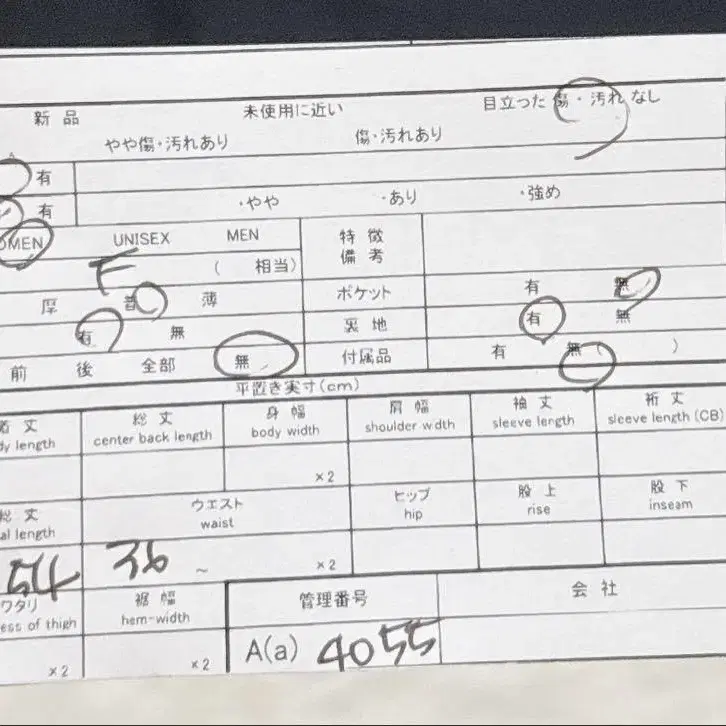 新品 未使用に近い 目立った傷・汚れなし
やや傷・汚れあり 傷・汚れあり
有
有 ・やや ・あり ・強め
OMEN UNISEX MEN 特徴
備考
F ( 相当)
厚 普 薄 ポケット 有 無
有 無 裏地 有 無
前 後 全部 無 付属品 有 無 ( )
平置き実寸(cm)
着丈 総丈 身幅 肩幅 袖丈 裄丈
dy length center back length body width shoulder width sleeve length sleeve length (CB)
×2
総丈 ウエスト ヒップ 股上 股下
al length waist hip rise inseam
54 36 ~ ×2
ワタリ 裾幅 管理番号 会社
ess of thigh hem-width
×2 ×2 A(a) 4055